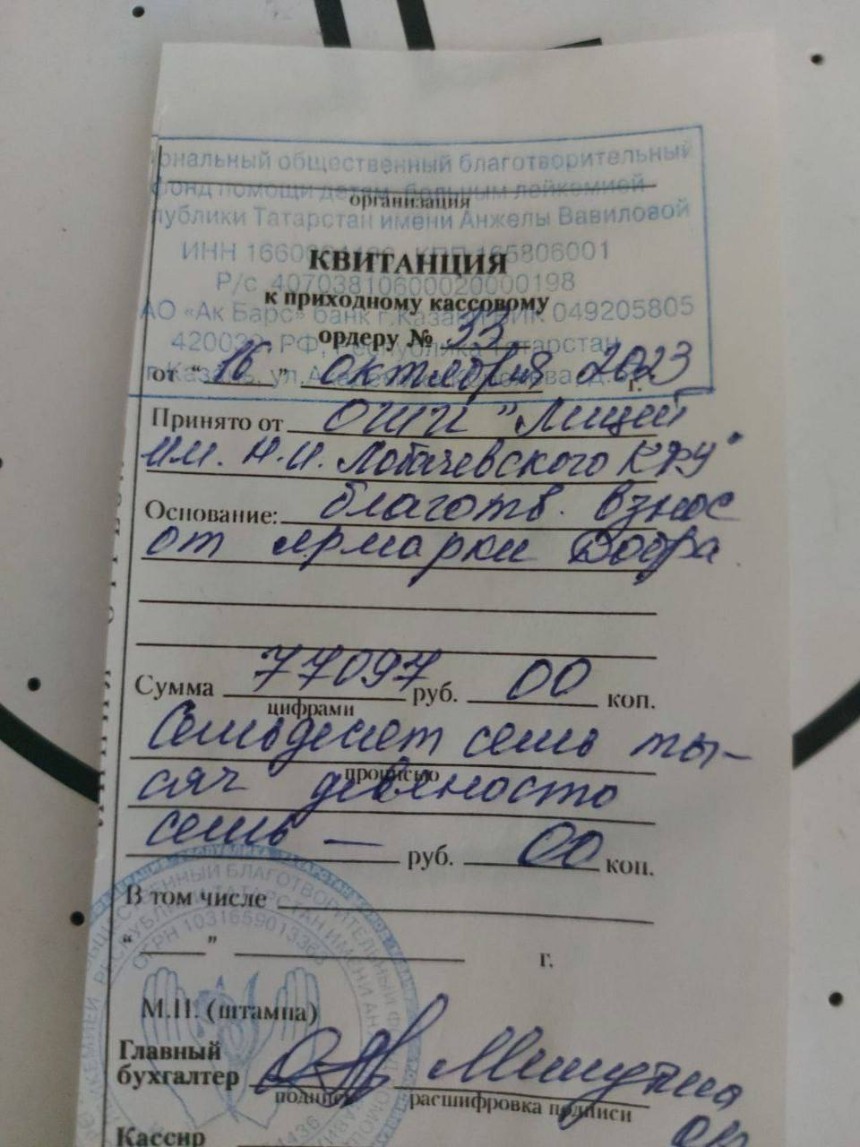 ональный общественный благотворительный
фонд помощи детям, больным лейкемией
организация
публики Татарстан имени Анжелы Вавиловой
ИНН 1660 КПП 165806001
КВИТАНЦИЯ
Р/с 40703810600020000198
к приходному кассовому
АО «Ак Барс» банк г.Казань БИК 049205805
ордеру № 33
РФ, Республика Татарстан
от "16" октября 2023 г.
г.Казань, ул.
Принято от ОШИ "Лицей
им. Н.И. Лобачевского КФУ"
Основание: благотв. взнос
от ярмарки Добра
Сумма 77097 руб. 00 коп.
цифрами
Семьдесят семь ты-
прописью
сяч девяносто
семь — руб. 00 коп.
В том числе
" " г.
ОБЩЕСТВЕННЫЙ БЛАГОТВОРИТЕЛЬНЫЙ
РЕСПУБЛИКИ ТАТАРСТАН ИМЕНИ
ОГРН
М.П. (штампа)
Главный
бухгалтер
подпись расшифровка подписи
Кассир